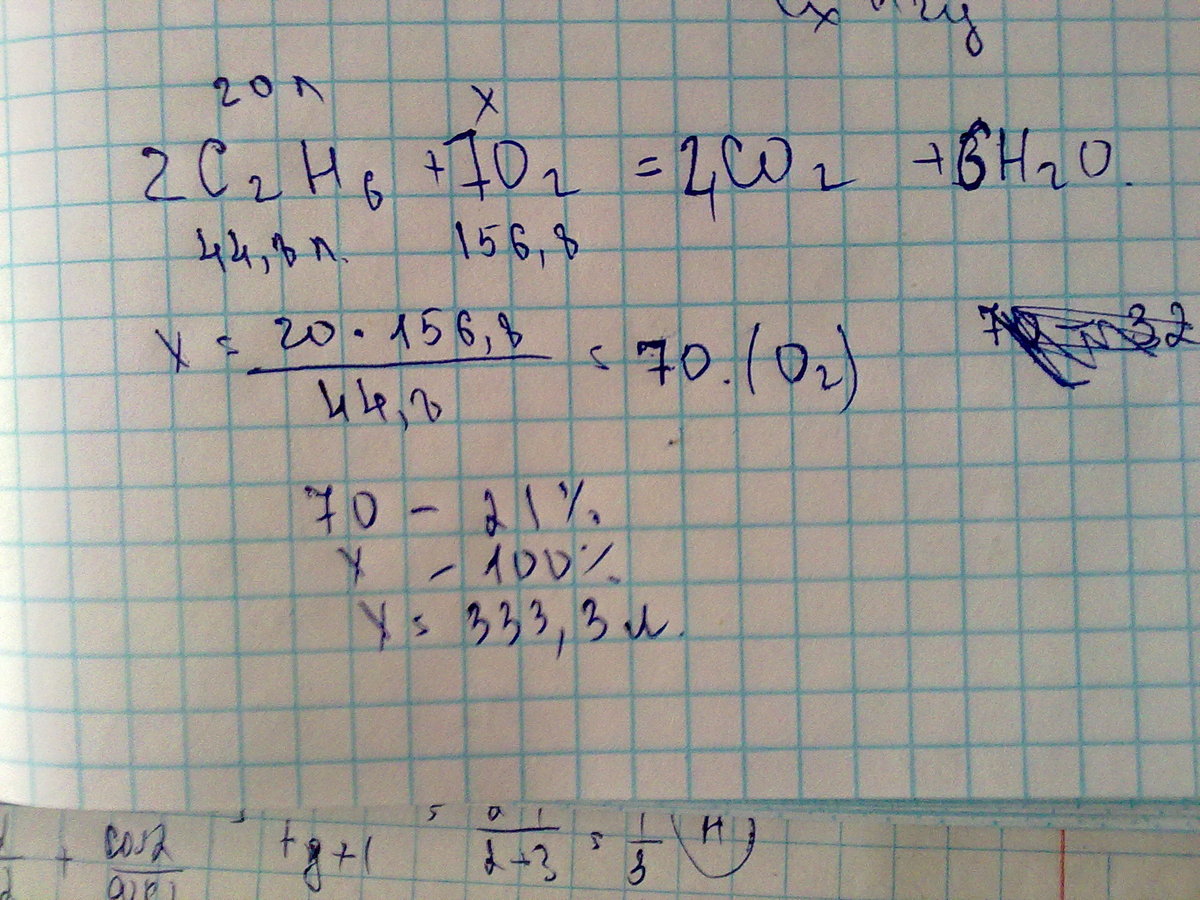 20 л x
2C₂H₆ + 7O₂ = 4CO₂ + 6H₂O.
44,8 л. 156,8
x = 20 · 156,8 / 44,8 = 70. (O₂)
70 – 21%
x – 100%
x = 333,3 л.